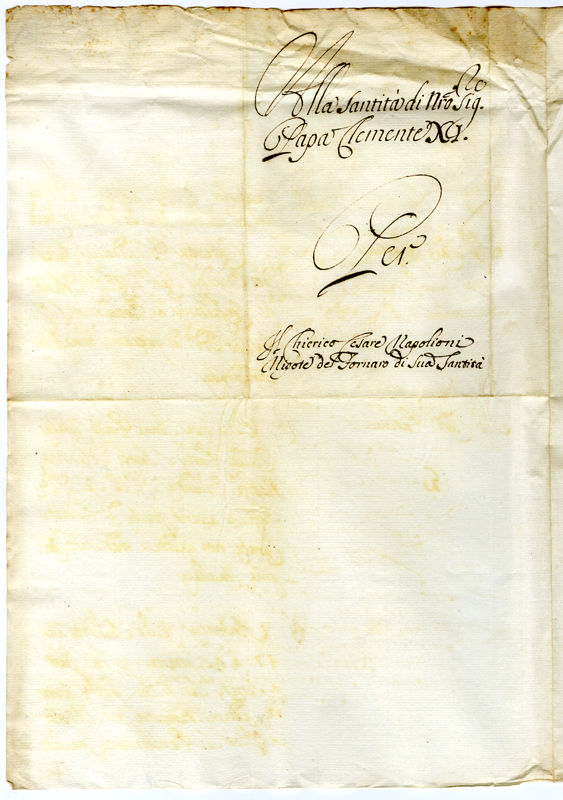 Alla Santità di Nrõ Sig.re
Papa Clemente XI.
Per
Il Chierico Cesare Napolioni
Nipote del Fornaro di Sua Santità